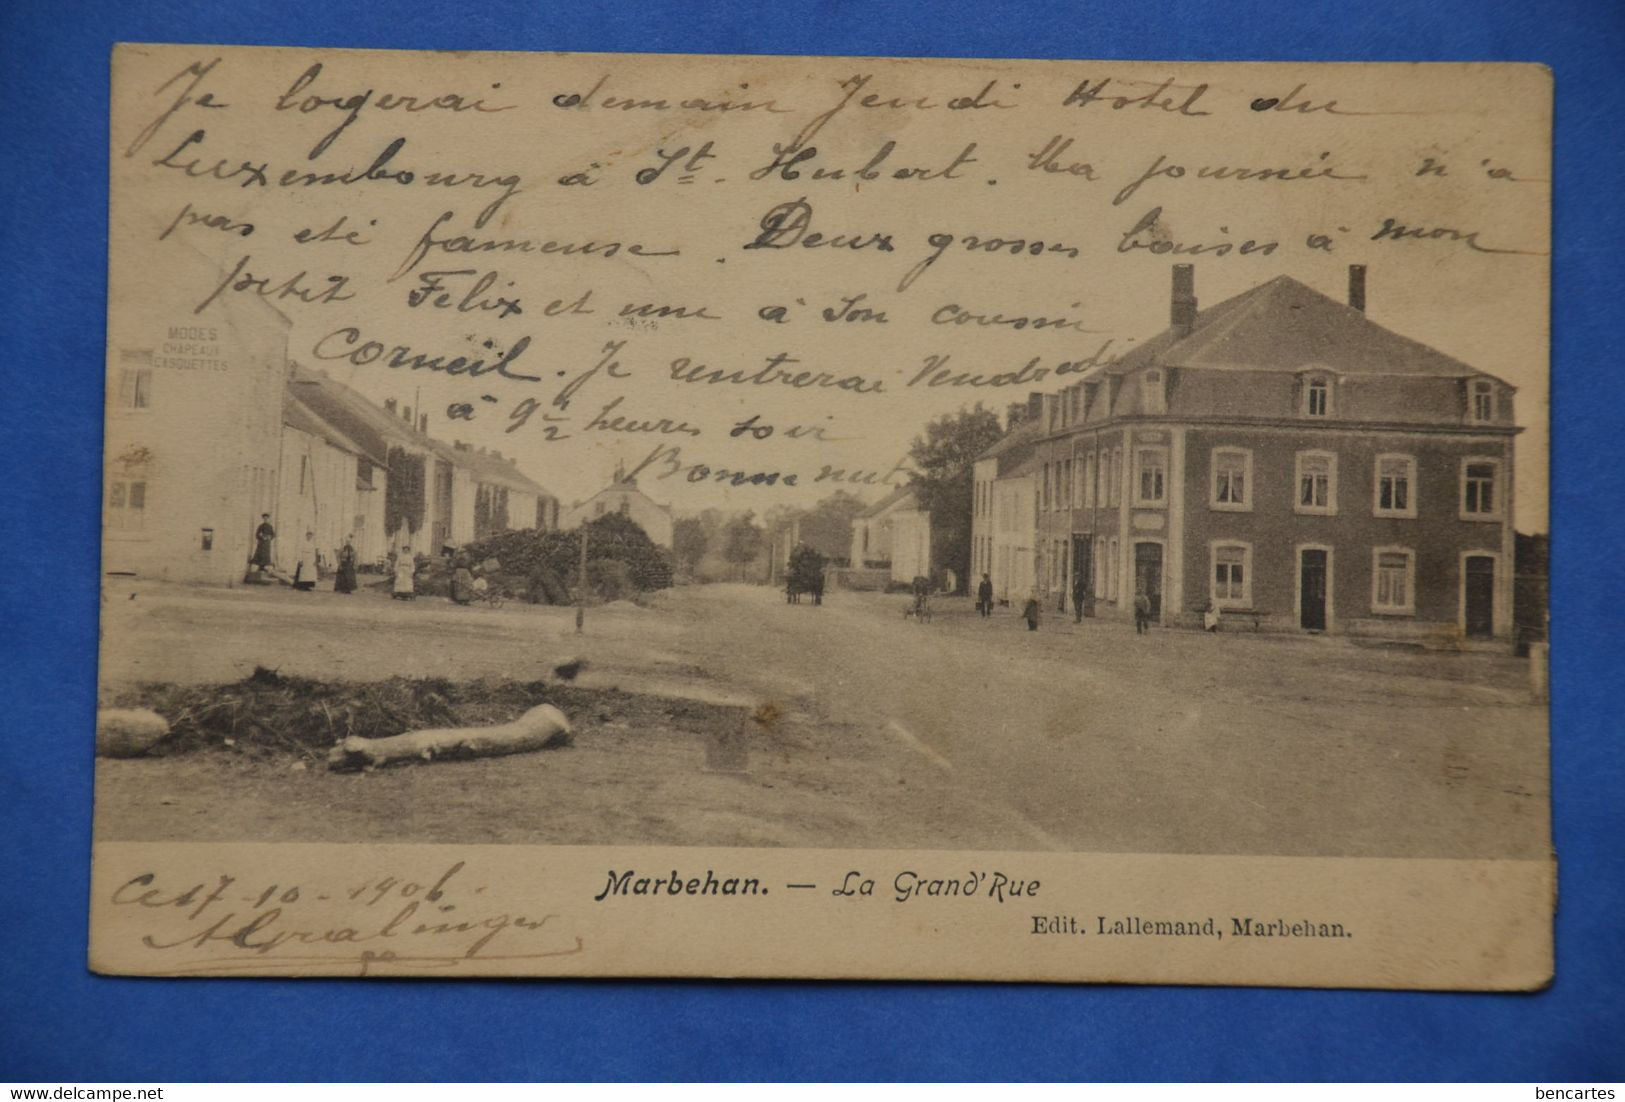 Je logerai demain Jeudi Hotel du
Luxembourg à St. Hubert. Ma journée n'a
pas été fameuse. Deux grosses baises à mon
petit Felix et une à son cousin
Corneil. Je rentrerai Vendredi
à 9 1/2 heures soir
Bonne nuit
MODES
CHAPEAUX
CASQUETTES
Ce 17-10-1906.
Marbehan. — La Grand'Rue
Edit. Lallemand, Marbehan.
delcampe.net
bencartes